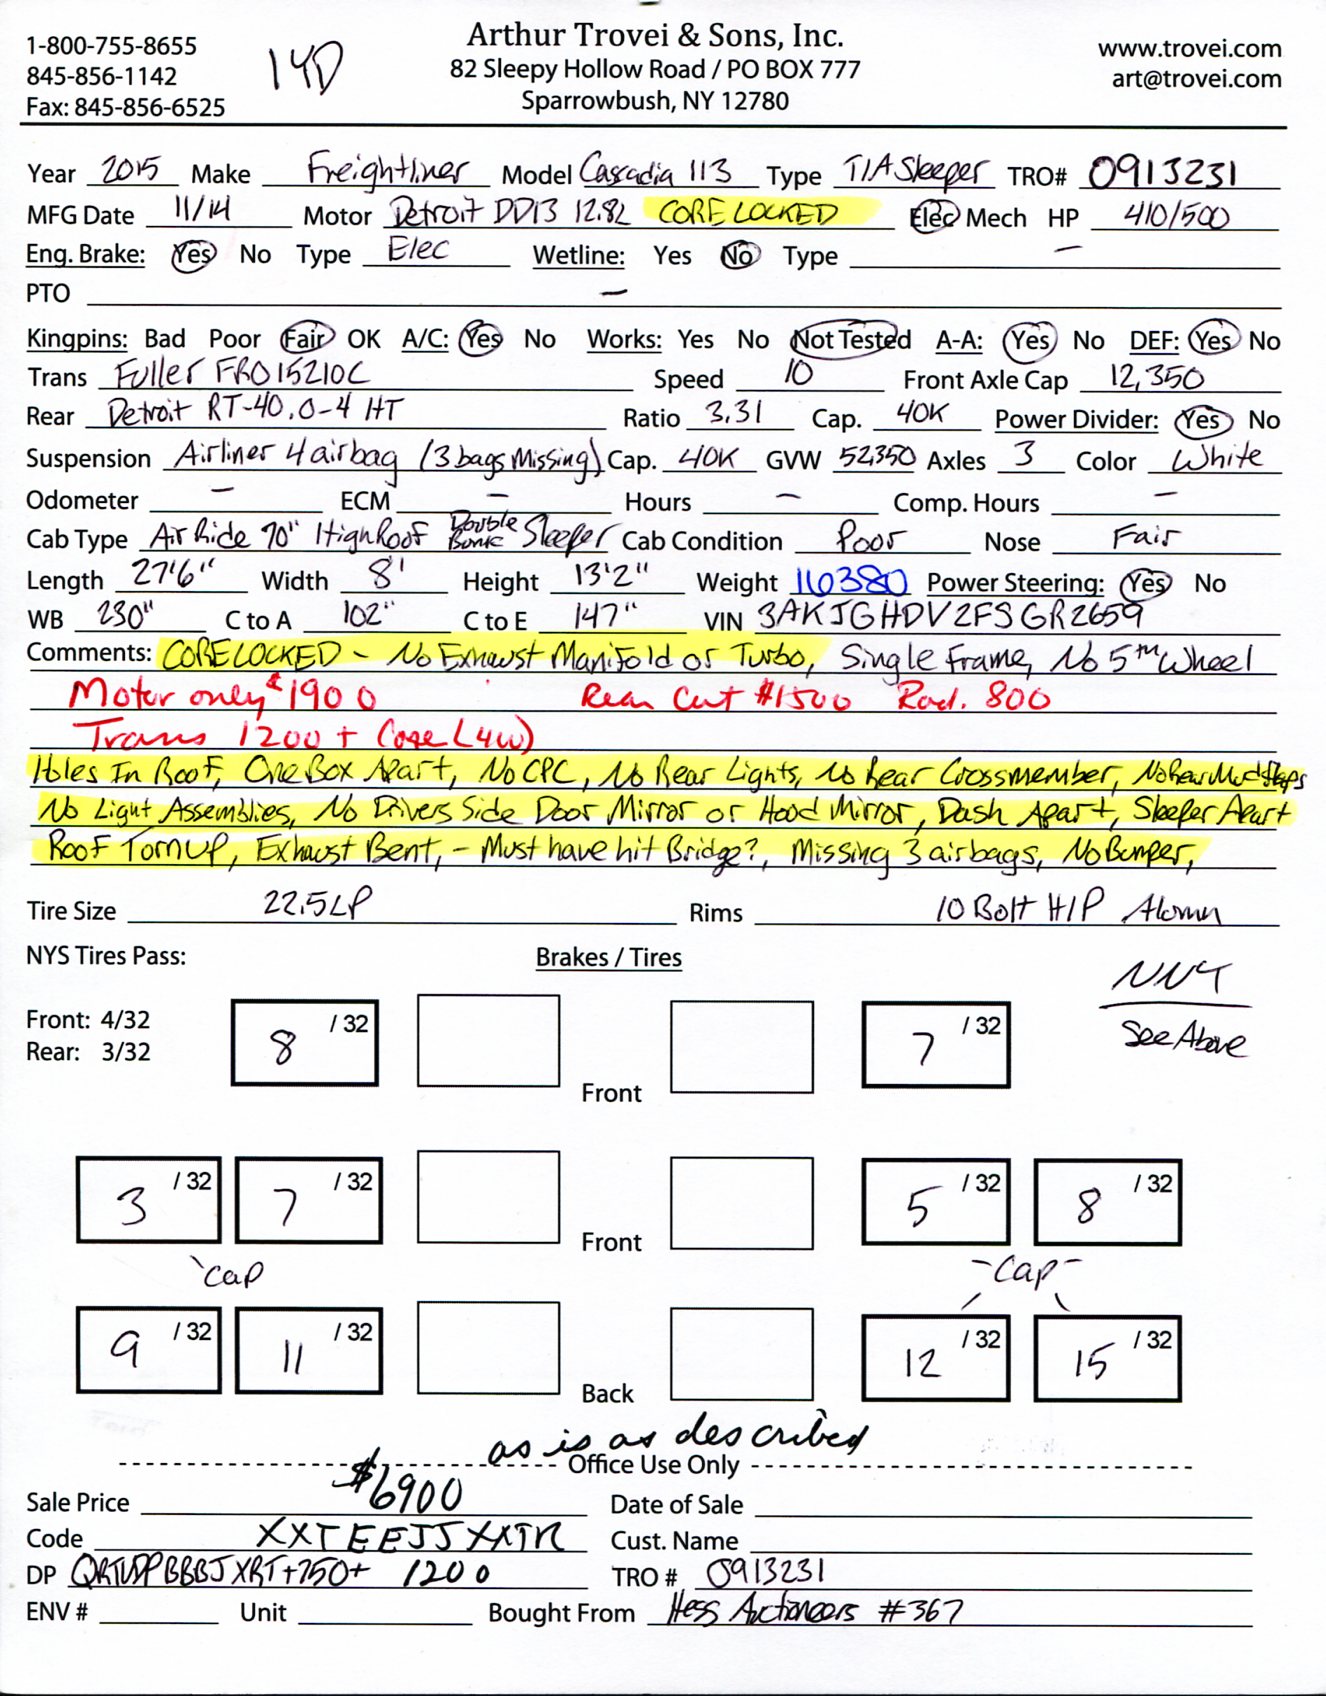 1-800-755-8655
845-856-1142
Fax: 845-856-6525
14D
Arthur Trovei & Sons, Inc.
82 Sleepy Hollow Road / PO BOX 777
Sparrowbush, NY 12780
www.trovei.com
art@trovei.com
Year 2015 Make Freightliner Model Cascadia 113 Type T/A Sleeper TRO# 0913231
MFG Date 11/14 Motor Detroit DD13 12.8L CORE LOCKED Elec Mech HP 410/500
Eng. Brake: Yes No Type Elec Wetline: Yes No Type —
PTO —
Kingpins: Bad Poor Fair OK A/C: Yes No Works: Yes No Not Tested A-A: Yes No DEF: Yes No
Trans Fuller FRO15210C Speed 10 Front Axle Cap 12,350
Rear Detroit RT-40.0-4 HT Ratio 3.31 Cap. 40K Power Divider: Yes No
Suspension Airliner 4 airbag (3 bags Missing) Cap. 40K GVW 52,350 Axles 3 Color White
Odometer — ECM — Hours — Comp. Hours —
Cab Type Air Ride 70" High Roof Double Bunk Sleeper Cab Condition Poor Nose Fair
Length 27'6" Width 8' Height 13'2" Weight 16380 Power Steering: Yes No
WB 230" C to A 102" C to E 147" VIN 3AKJGHDV2FSGR2659
Comments: CORE LOCKED - No Exhaust Manifold or Turbo, Single Frame, No 5th Wheel
Motor only $1900 Rear Cut $1500 Rad. 800
Trans 1200 + Core (400)
Holes In Roof, One Box Apart, No CPC, No Rear Lights, No Rear Crossmember, No Rear Mud flaps
No Light Assemblies, No Drivers Side Door Mirror or Hood Mirror, Dash Apart, Sleeper Apart
Roof Torn up, Exhaust Bent, - Must have hit Bridge?, Missing 3 airbags, No Bumper,
Tire Size 22.5LP Rims 10 Bolt H/P Alumn
NYS Tires Pass: Brakes / Tires
NNY
See Above
Front: 4/32
Rear: 3/32
8 /32 7 /32
Front
3 /32 7 /32 5 /32 8 /32
Front
Cap -Cap-
9 /32 11 /32 12 /32 15 /32
Back
as is as described
Office Use Only
Sale Price $6900 Date of Sale
Code XXTEEJJXXTR Cust. Name
DP +750+ 1200 TRO # 0913231
ENV # Unit Bought From Hess Auctioneers #367